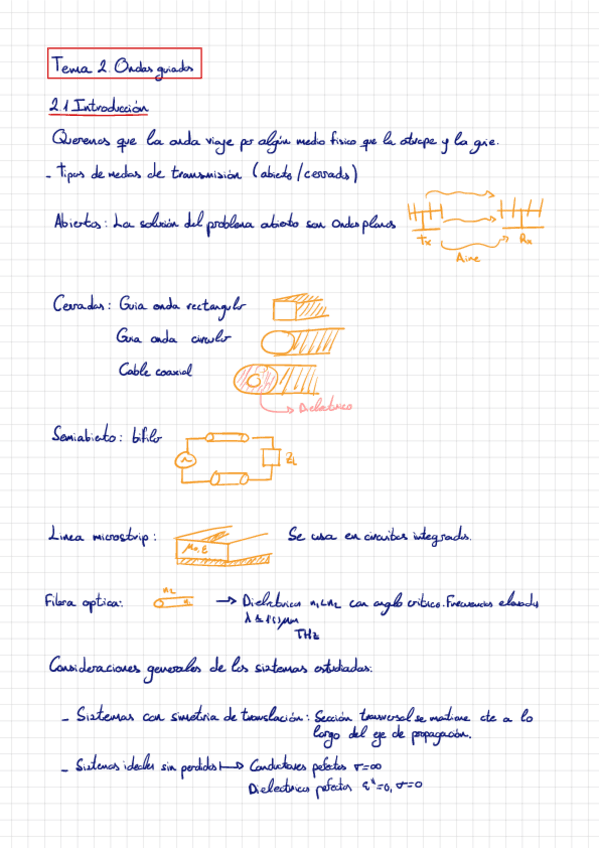 Tema 2. Ondas guiadas
2.1 Introducción
Queremos que la onda viaje por algún medio fisico que la atrape y la guie.
- Tipos de medios de transmisión (abierto/cerrado)
Abiertos: La solución del problema abierto son Ondas planas
Tx Rx
Aire
Cerradas: Guia onda rectangular
Guia onda circular
Cable coaxial
Dielectrico
Semiabierto: bifilar
ZL
Linea microstrip: μ₀, ε Se usa en circuitos integrados.
Fibra optica: n2 n1 → Dielectricos n1<n2 con angulo critico. Frecuencias elevadas
λ ≤ 10 μm
THz
Consideraciones generales de los sistemas estudiados:
- Sistemas con simetria de translación: Sección transversal se mantiene cte a lo
largo del eje de propagación.
- Sistemas ideales sin perdidas ↦ Conductores pefectos σ=∞
Dielectricos pefectos ε''=0, σ=0